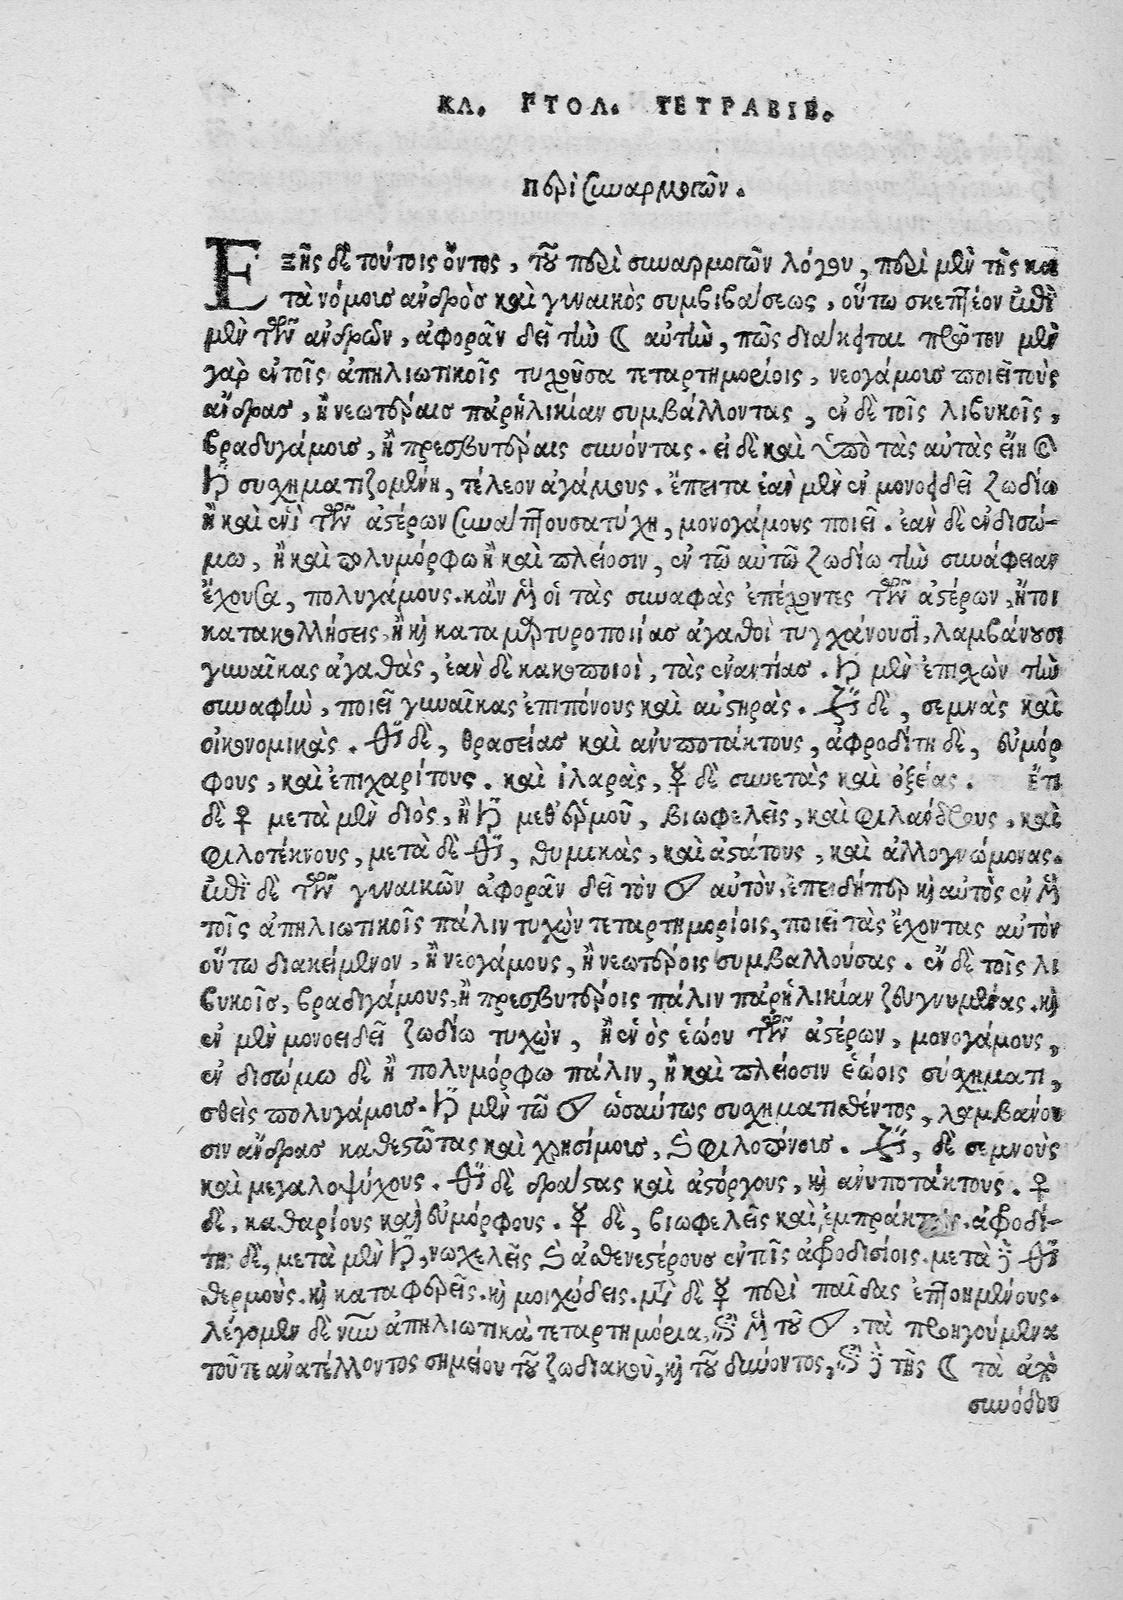 ΚΛ. ΠΤΟΛ. ΤΕΤΡΑΒΙΒ.
περὶ συναρμογῶν.
Εξῆς δὲ τούτοις ὄντος, τοῦ περὶ συναρμογῶν λόγου, περὶ μὲν τῆς κα
τὰ νόμοις ἀνδρὸς καὶ γυναικὸς συμβιβάσεως, οὕτω σκεπτέον ἐπὶ
μὲν τῶν ἀνδρῶν, ἀφορᾶν δεῖ τὴν ☾ αὐτὴν, πῶς διάκειται πρῶτον μὲν
γὰρ ἐν τοῖς ἀπηλιωτικοῖς τυχοῦσα τεταρτημορίοις, νεογάμοις ποιεῖ τοὺς
ἄνδρας, ἢ νεωτέραις παρ' ἡλικίαν συμβάλλοντας, ἐν δὲ τοῖς λιβυκοῖς,
βραδυγάμοις, ἢ πρεσβυτέραις συνόντας. εἰ δὲ καὶ ὑπὸ τὰς αὐτὰς εἴη
♄ συσχηματιζομένη, τέλεον ἀγάμους. ἔπειτα ἐὰν μὲν ἐν μονοειδεῖ ζωδίω
ἢ καὶ ἑνὶ τῶν ἀστέρων συνάπτουσα τύχη, μονογάμους ποιεῖ. ἐὰν δὲ ἐν δισώ-
μω, ἢ καὶ πολυμόρφω ἢ καὶ πλείοσιν, ἐν τῶ αὐτῶ ζωδίω τὴν συνάφειαν
ἔχουσα, πολυγάμους. κἂν μὲν οἱ τὰς συναφὰς ἐπέχοντες τῶν ἀστέρων, ἤτοι
κατακολλήσεις, ἢ καὶ καταμαρτυροποιίας ἀγαθοὶ τυγχάνουσι, λαμβάνουσι
γυναῖκας ἀγαθὰς, ἐὰν δὲ κακοποιοὶ, τὰς ἐναντίας. ♄ μὲν ἐπιχὼν τὴν
συναφὴν, ποιεῖ γυναῖκας ἐπιπόνους καὶ αὐστηράς. ♃ δὲ, σεμνὰς καὶ
οἰκονομικὰς. ♂ δὲ, θρασείας καὶ ἀνυποτάκτους, ἀφροδίτη δὲ, εὐμόρ
φους, καὶ ἐπιχαρίτους. καὶ ἱλαρὰς, ☿ δὲ συνετὰς καὶ ὀξείας. ἔτι
δὲ ♀ μετὰ μὲν διὸς, ἢ ♄ μεθ' ἑρμοῦ, βιωφελεῖς, καὶ φιλάνδρους, καὶ
φιλοτέκνους, μετὰ δὲ ♂, θυμικὰς, καὶ ἀστάτους, καὶ ἀλλογνώμονας.
ἐπὶ δὲ τῶν γυναικῶν ἀφορᾶν δεῖ τὸν ☉ αὐτὸν, ἐπειδήπερ καὶ αὐτὸς ἐν μὲν
τοῖς ἀπηλιωτικοῖς πάλιν τυχὼν τεταρτημορίοις, ποιεῖ τὰς ἔχοντας αὐτὸν
οὕτω διακείμενον, ἢ νεογάμους, ἢ νεωτέροις συμβαλλούσας. ἐν δὲ τοῖς λι
βυκοῖς, βραδυγάμους, ἢ πρεσβυτέροις πάλιν παρ' ἡλικίαν ζευγνυμένας. καὶ
ἐν μὲν μονοειδεῖ ζωδίω τυχὼν, ἢ ἑνὸς ἑώου τῶν ἀστέρων, μονογάμους,
ἐν δισώμω δὲ ἢ πολυμόρφω πάλιν, ἢ καὶ πλείοσιν ἑώοις σύσχηματι,
σθεὶς πολυγάμοις. ♄ μὲν τῶ ☉ ὡσαύτως συσχηματισθέντος, λαμβάνου
σιν ἄνδρας καθεστῶτας καὶ χρησίμοις, καὶ φιλοπόνοις. ♃, δὲ σεμνοὺς
καὶ μεγαλοψύχους. ♂ δὲ δράστας καὶ ἀστόργους, καὶ ἀνυποτάκτους. ♀
δὲ, καθαρίους καὶ εὐμόρφους. ☿ δὲ, βιωφελεῖς καὶ ἐμπράκτους. ἀφροδί-
τη δὲ, μετὰ μὲν ♄, νωχελεῖς καὶ ἀσθενεστέρους ἐν τοῖς ἀφροδισίοις. μετὰ δὲ ♂
θερμοὺς. καὶ καταφερεῖς. καὶ μοιχώδεις. μετὰ δὲ ☿ περὶ παῖδας ἐπτοημένους.
λέγομεν δὲ νῦν ἀπηλιωτικὰ τεταρτημόρια, ἐπὶ μὲν τοῦ ☉, τὰ προηγούμενα
τοῦτε ἀνατέλλοντος σημείου τοῦ ζωδιακοῦ, καὶ τοῦ δύνοντος, ἐπὶ δὲ τῆς ☾ τὰ ἀπὸ
συνόδου